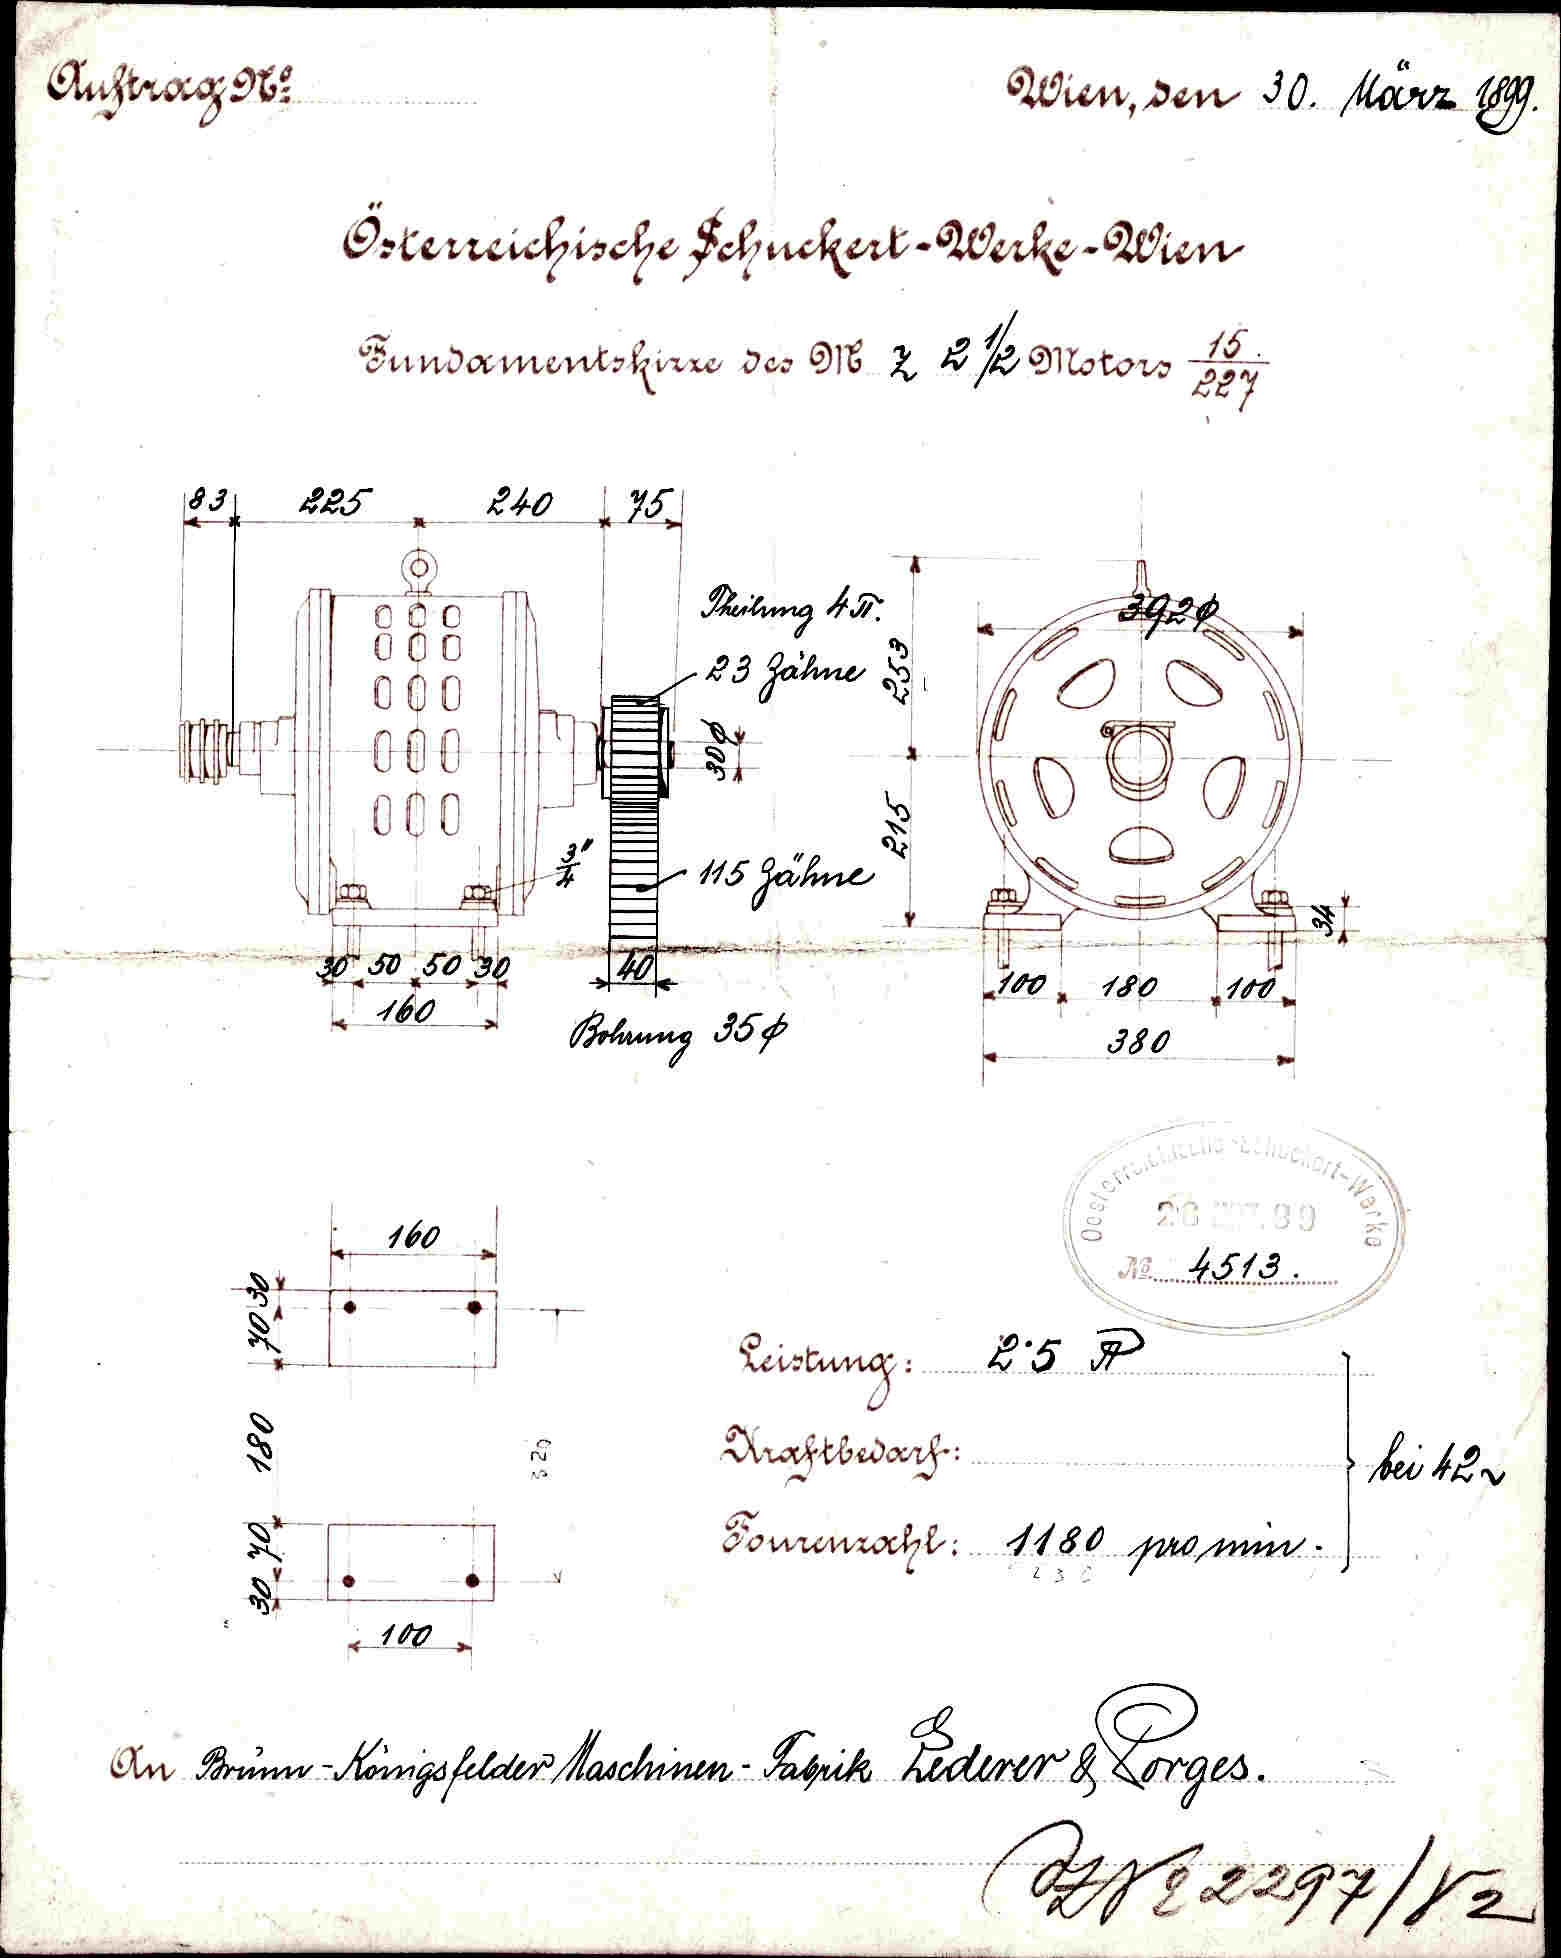 Auftrag No
Wien, den 30. März 1899.
Österreichische Schuckert-Werke-Wien
Fundamentskizze des M Z 2 1/2 Motors 15/227
83 225 240 75
Theilung 4 π.
23 Zähne
30 ϕ
3/4"
115 Zähne
30 50 50 30
40
160
Bohrung 35 ϕ
392 ϕ
253
215
34
100 180 100
380
Oesterreichische Schuckert-Werke
No 4513.
160
30
70
180
320
70
30
100
Leistung: 2·5 P
Kraftbedarf:
Tourenzahl: 1180 pro min.
bei 42 ~
An Brünn-Königsfelder Maschinen-Fabrik Lederer & Porges.
2297/